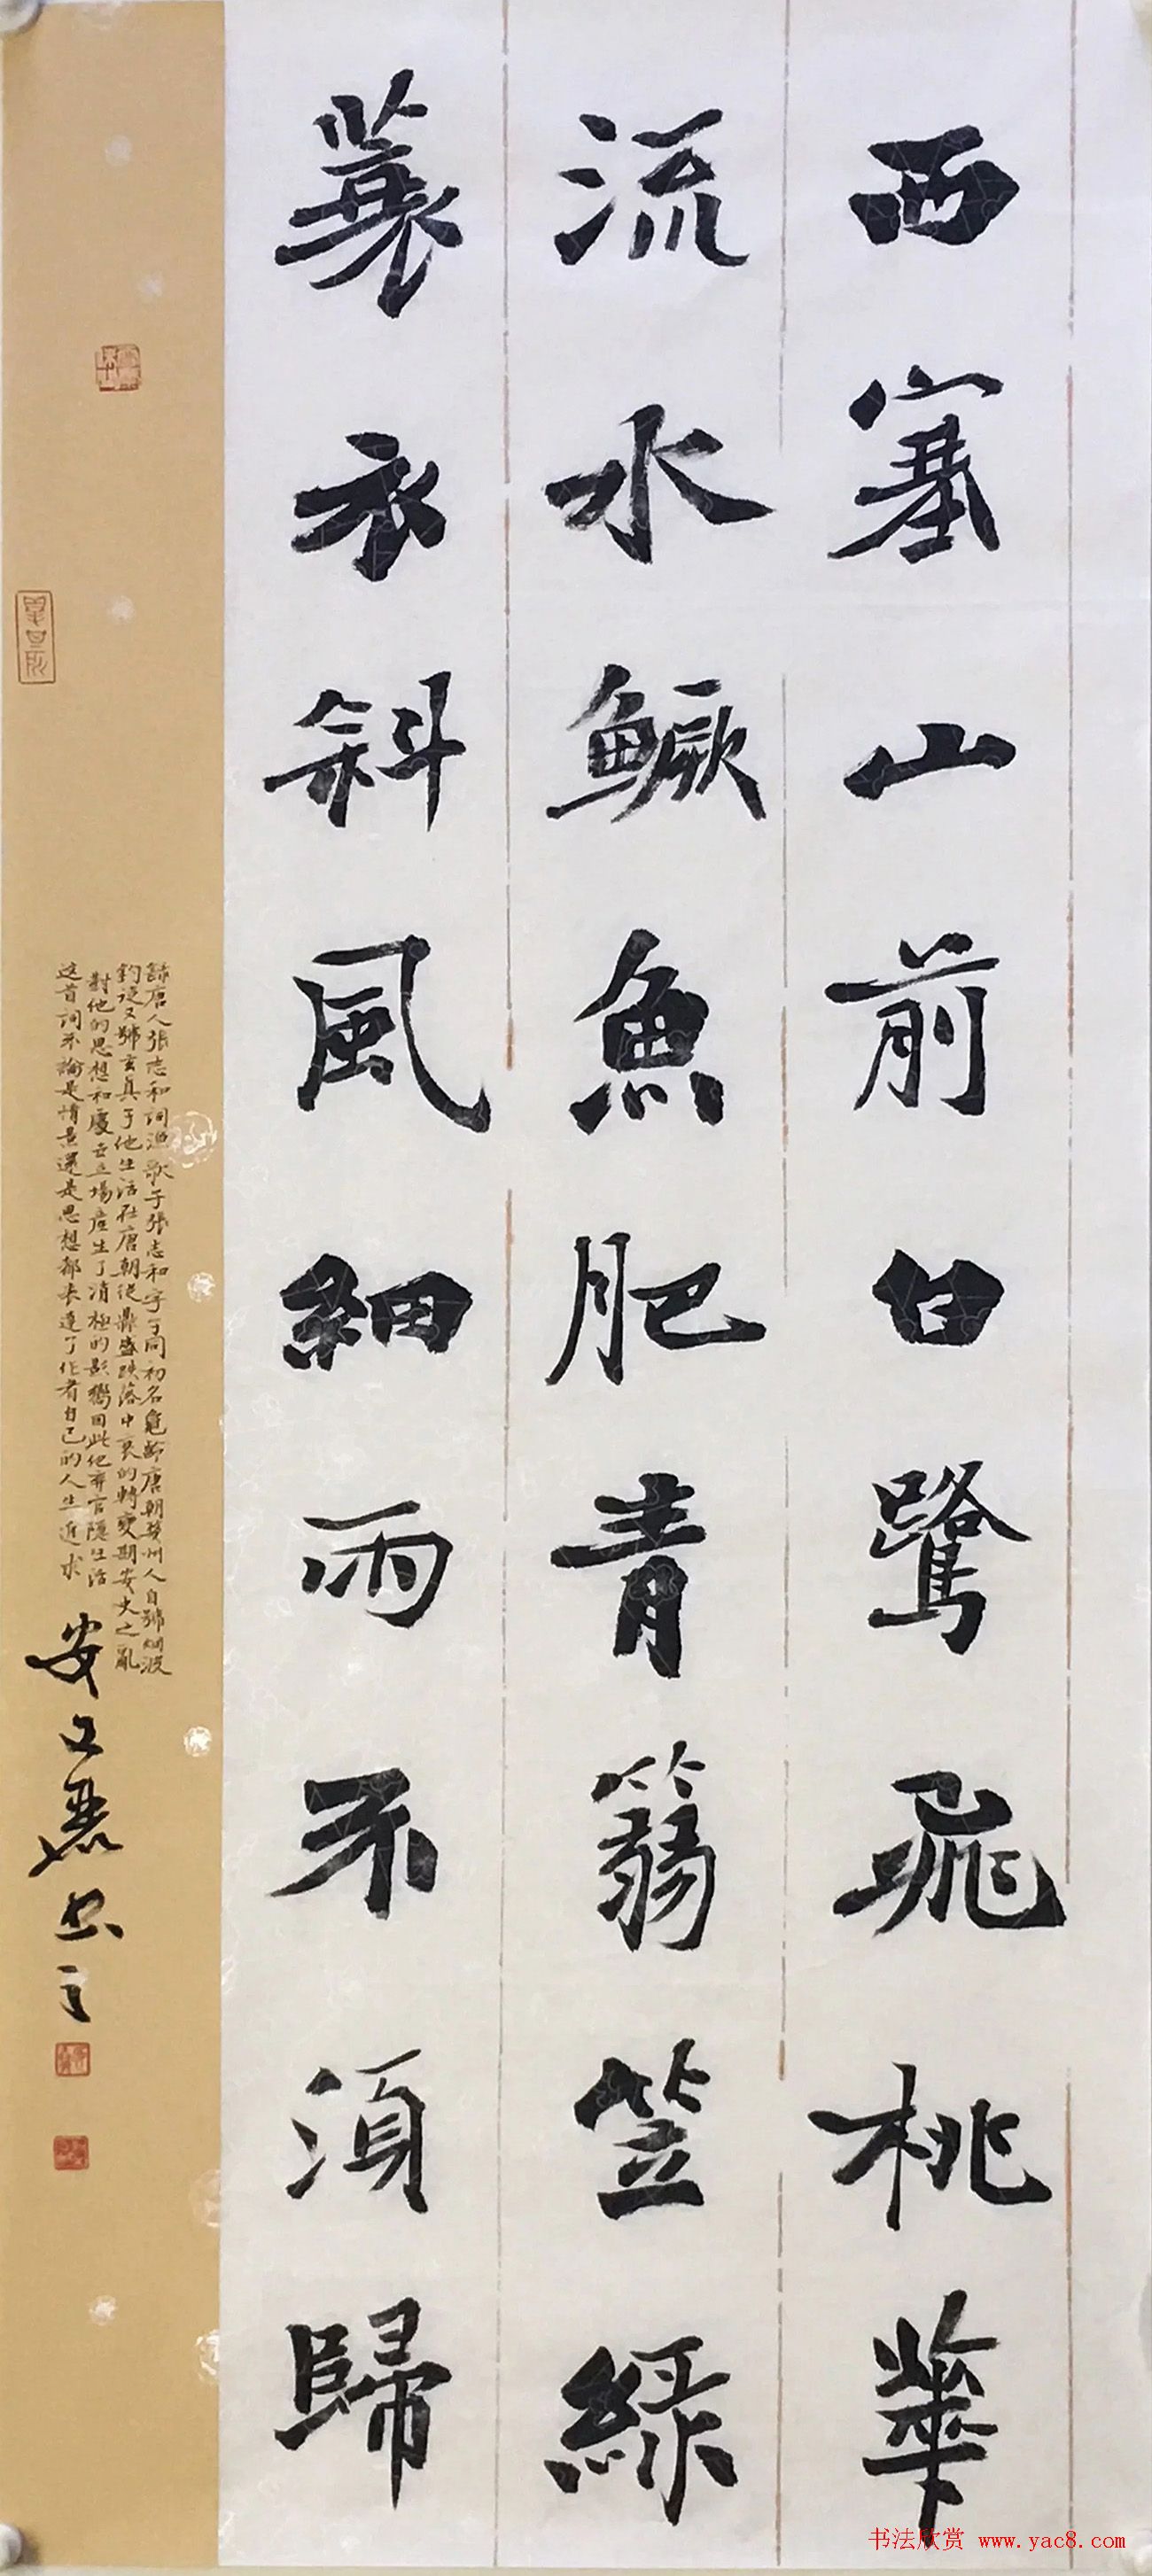 西塞山前白鷺飛桃華
流水鱖魚肥青篛笠綠
蓑衣斜風細雨不須歸
錄唐人張志和詞漁歌子張志和字子同初名龜齡唐朝婺州人自號烟波
釣徒又號玄真子他生活在唐朝從鼎盛跌落中衰的轉變期安史之亂
對他的思想和處世立場產生了消極的影響因此他弃官隱生活
这首詞不論是情景還是思想都表達了作者自己的人生追求
安文麗書
书法欣赏 www.yac8.com